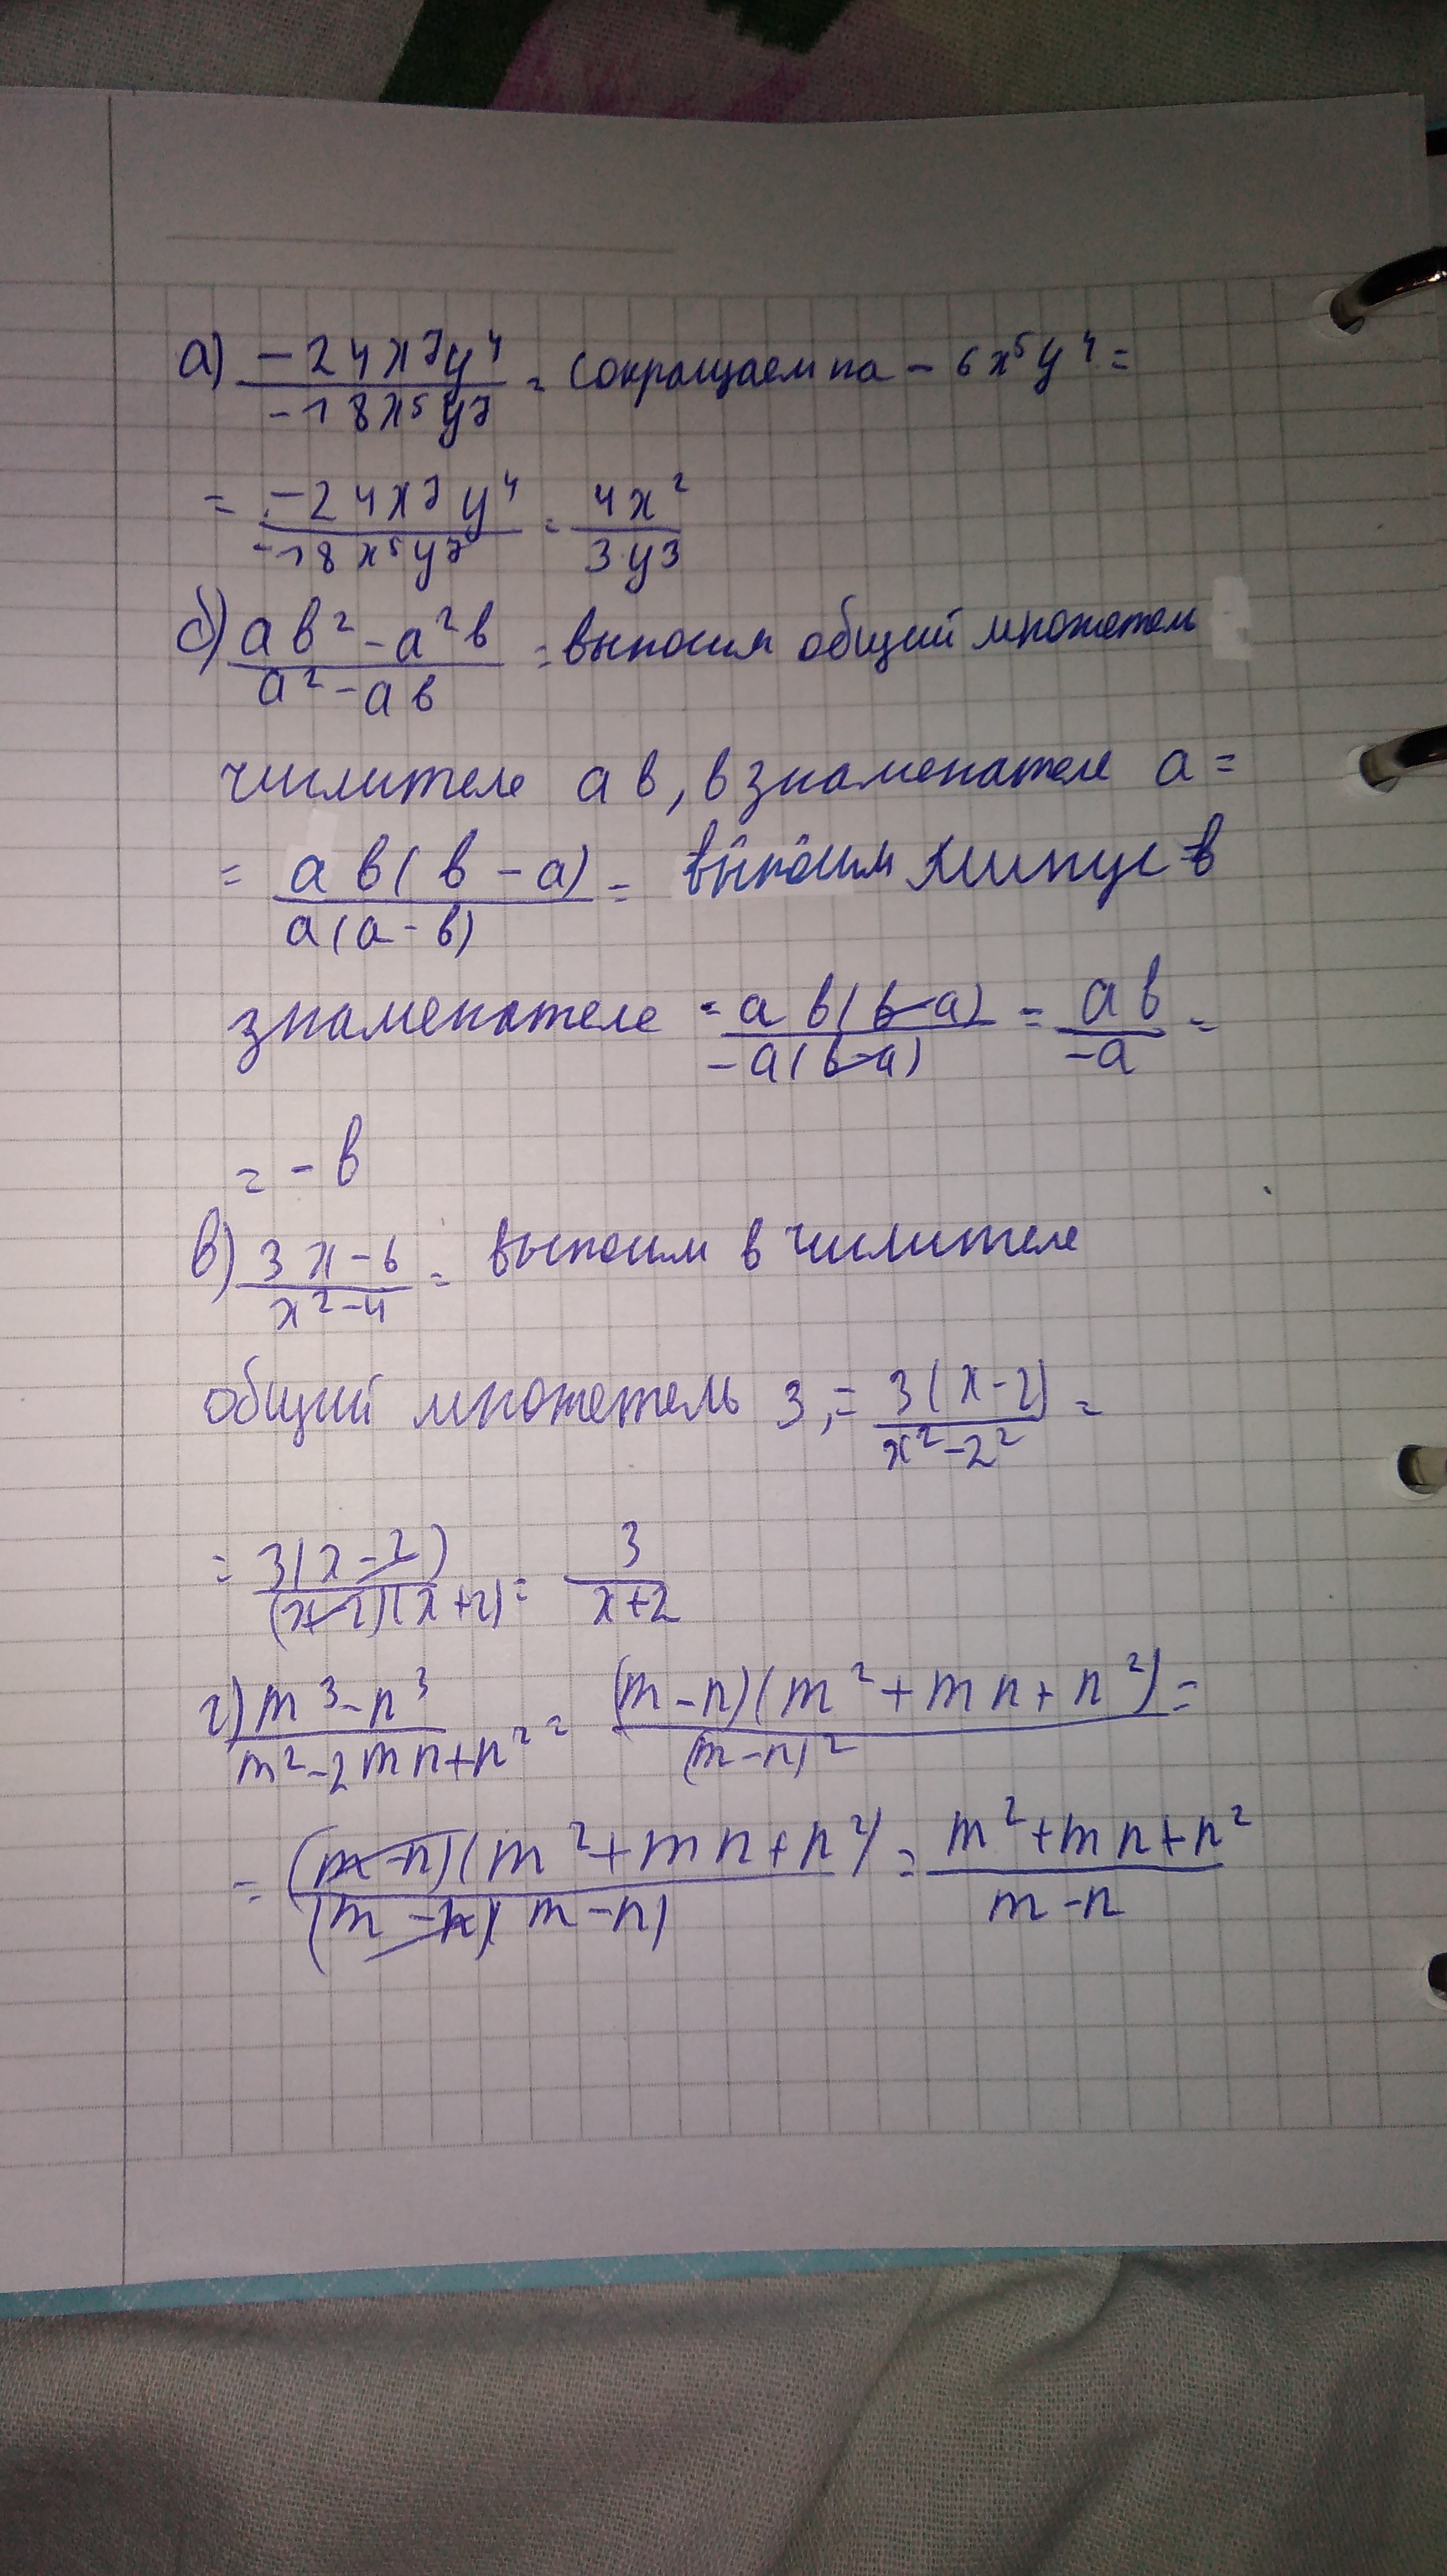 а) -24x⁷y⁴/-18x⁵y⁷ = сокращаем на - 6x⁵y⁴ =
= -24x⁷y⁴/-18x⁵y⁷ = 4x²/3y³
б) ab² - a²b/a² - ab = выносим общий множетель
числителе ab, в знаменателе a =
= ab(b - a)/a(a - b) = выносим минус в
знаменателе = ab(b-a)/-a(b-a) = ab/-a =
= - b
в) 3x - 6/x² - 4 = выносим в числителе
общий множетель 3, = 3(x - 2)/x² - 2² =
= 3(x - 2)/(x-2)(x+2) = 3/x+2
г) m³ - n³/m² - 2mn + n² = (m - n)(m² + mn + n²)/(m - n)² =
= (m - n)(m² + mn + n²)/(m - n)(m - n) = m² + mn + n²/m - n